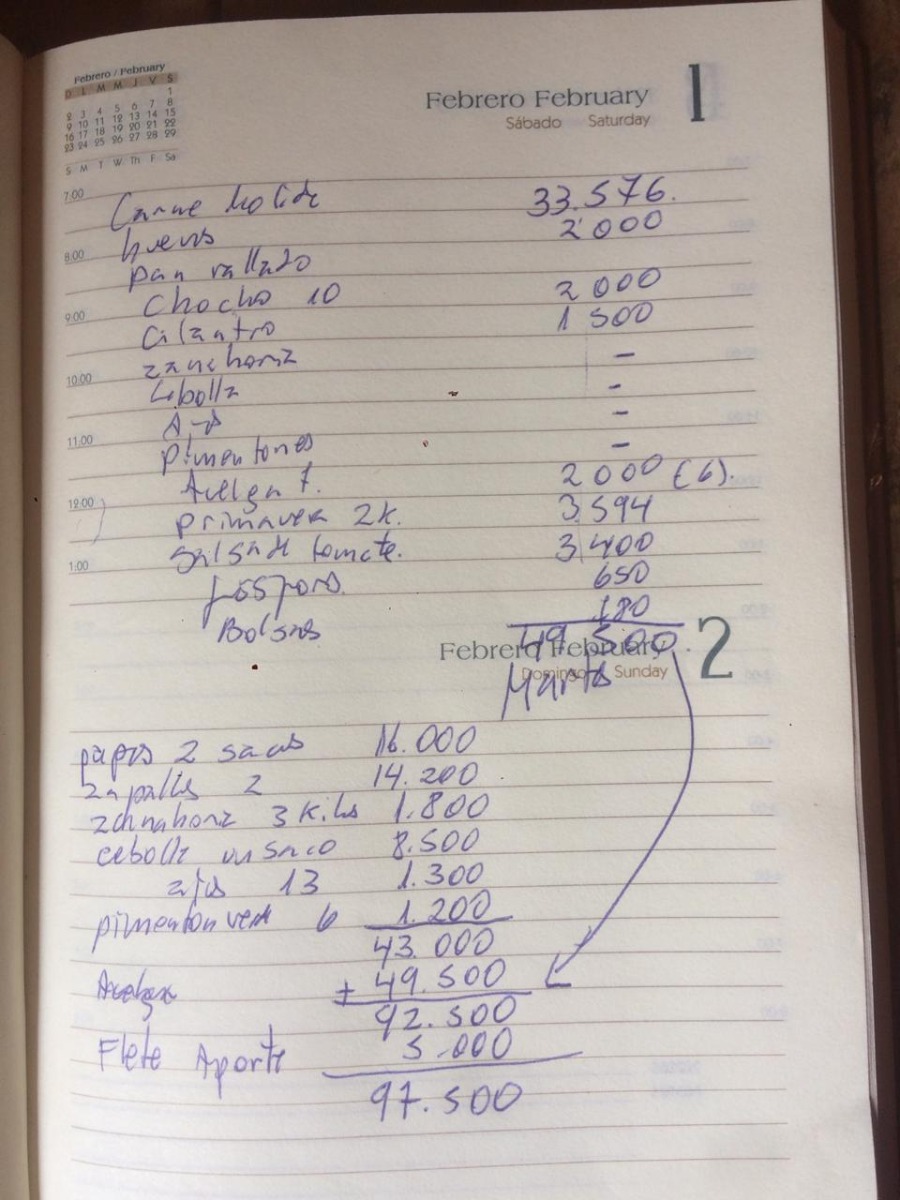 Febrero / February
D L M M J V S
1
2 3 4 5 6 7 8
9 10 11 12 13 14 15
16 17 18 19 20 21 22
23 24 25 26 27 28 29
S M T W Th F Sa
Febrero February 1
Sábado Saturday
7:00
Carne molida 33.576.
8:00 huevos 2.000
pan rallado
9:00 Chocho 10 2 000
Cilantro 1 500
zanahoria -
10:00 Cebolla -
Ajo -
11:00 Pimentones -
Acelga 7. 2 000 (6).
12:00 primavera 2k. 3.594
1:00 Salsa de tomate. 3 400
fósforos 650
Bolsas 180
49.500.
Febrero February 2
Domingo Sunday
Martes
papas 2 sacos 16.000
zapallos 2 14.200
zahnahoria 3 kilos 1.800
cebolla un saco 8.500
ajos 13 1.300
pimenton verde 6 1.200
43.000
Acelga + 49.500
92.500
Flete Aporte 5.000
97.500